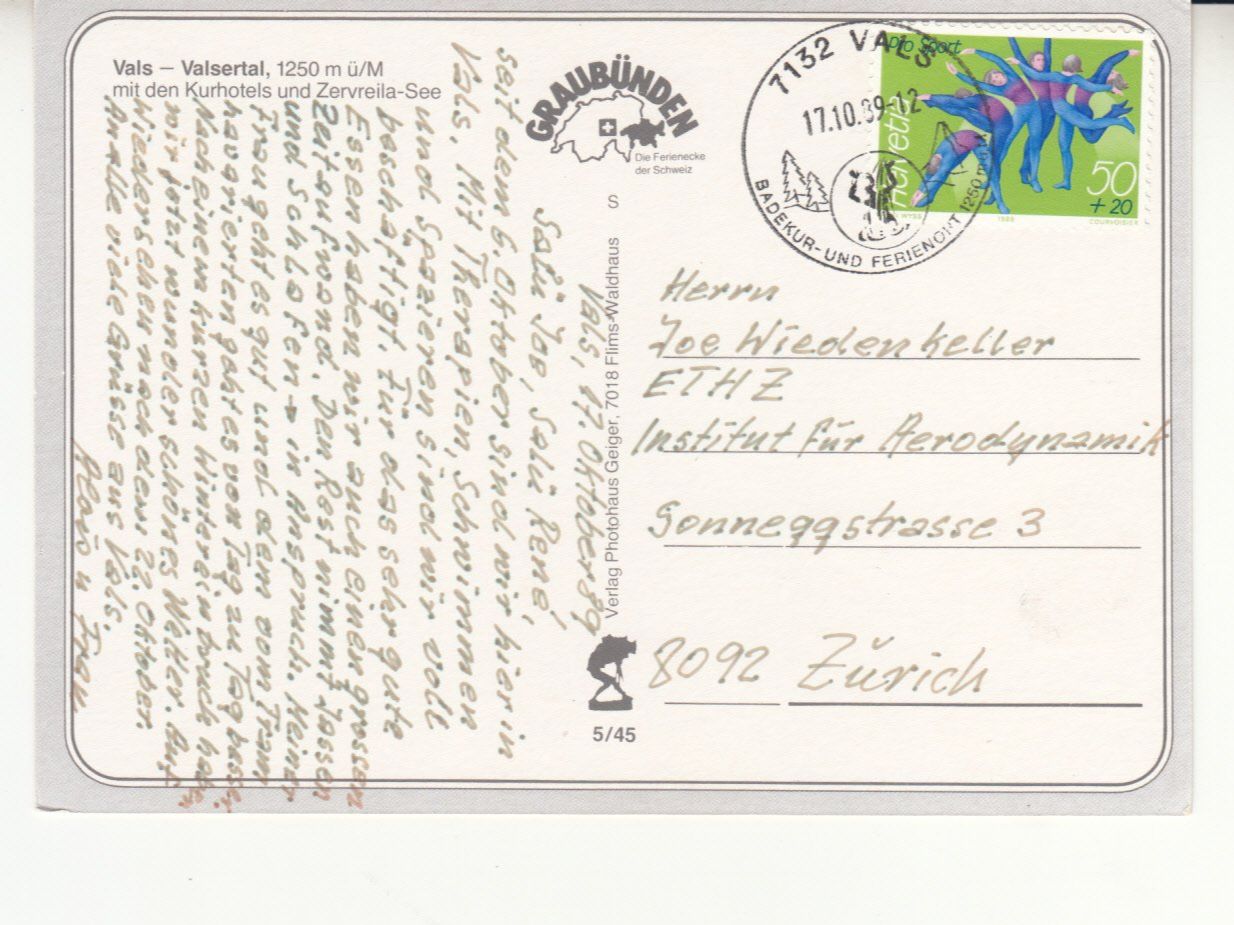 Vals – Valsertal, 1250 m ü/M
mit den Kurhotels und Zervreila-See
GRAUBÜNDEN
Die Ferienecke
der Schweiz
7132 VALS
17.10.89-12
BADEKUR- UND FERIENORT 1250 m ü.M.
Pro Sport
Helvetia
50
+ 20
WYSS
1989
COURVOISIER
S
Verlag Photohaus Geiger, 7018 Flims-Waldhaus
5/45
Vals, 17. Oktober 89
Salü Joe, Salü René
seit dem 6. Oktober sind wir hier in
Vals. Mit Therapien, Schwimmen
und spazieren sind wir voll
beschäftigt. Für das sehr gute
Essen haben wir auch einen grossen
Zeitaufwand. Den Rest nimmt Jassen
und Schlafen → in Anspruch. Meiner
Frau geht es gut und dem vom Tram
havarierten geht es von Tag zu Tag besser.
Nach einem kurzen Wintereinbruch haben
wir jetzt wunderschönes Wetter. Auf
Wiedersehen nach dem 22. Oktober
An alle viele Grüsse aus Vals.
u Frau
Herrn
Joe Wiedenkeller
ETHZ
Institut für Aerodynamik
Sonneggstrasse 3
8092 Zürich